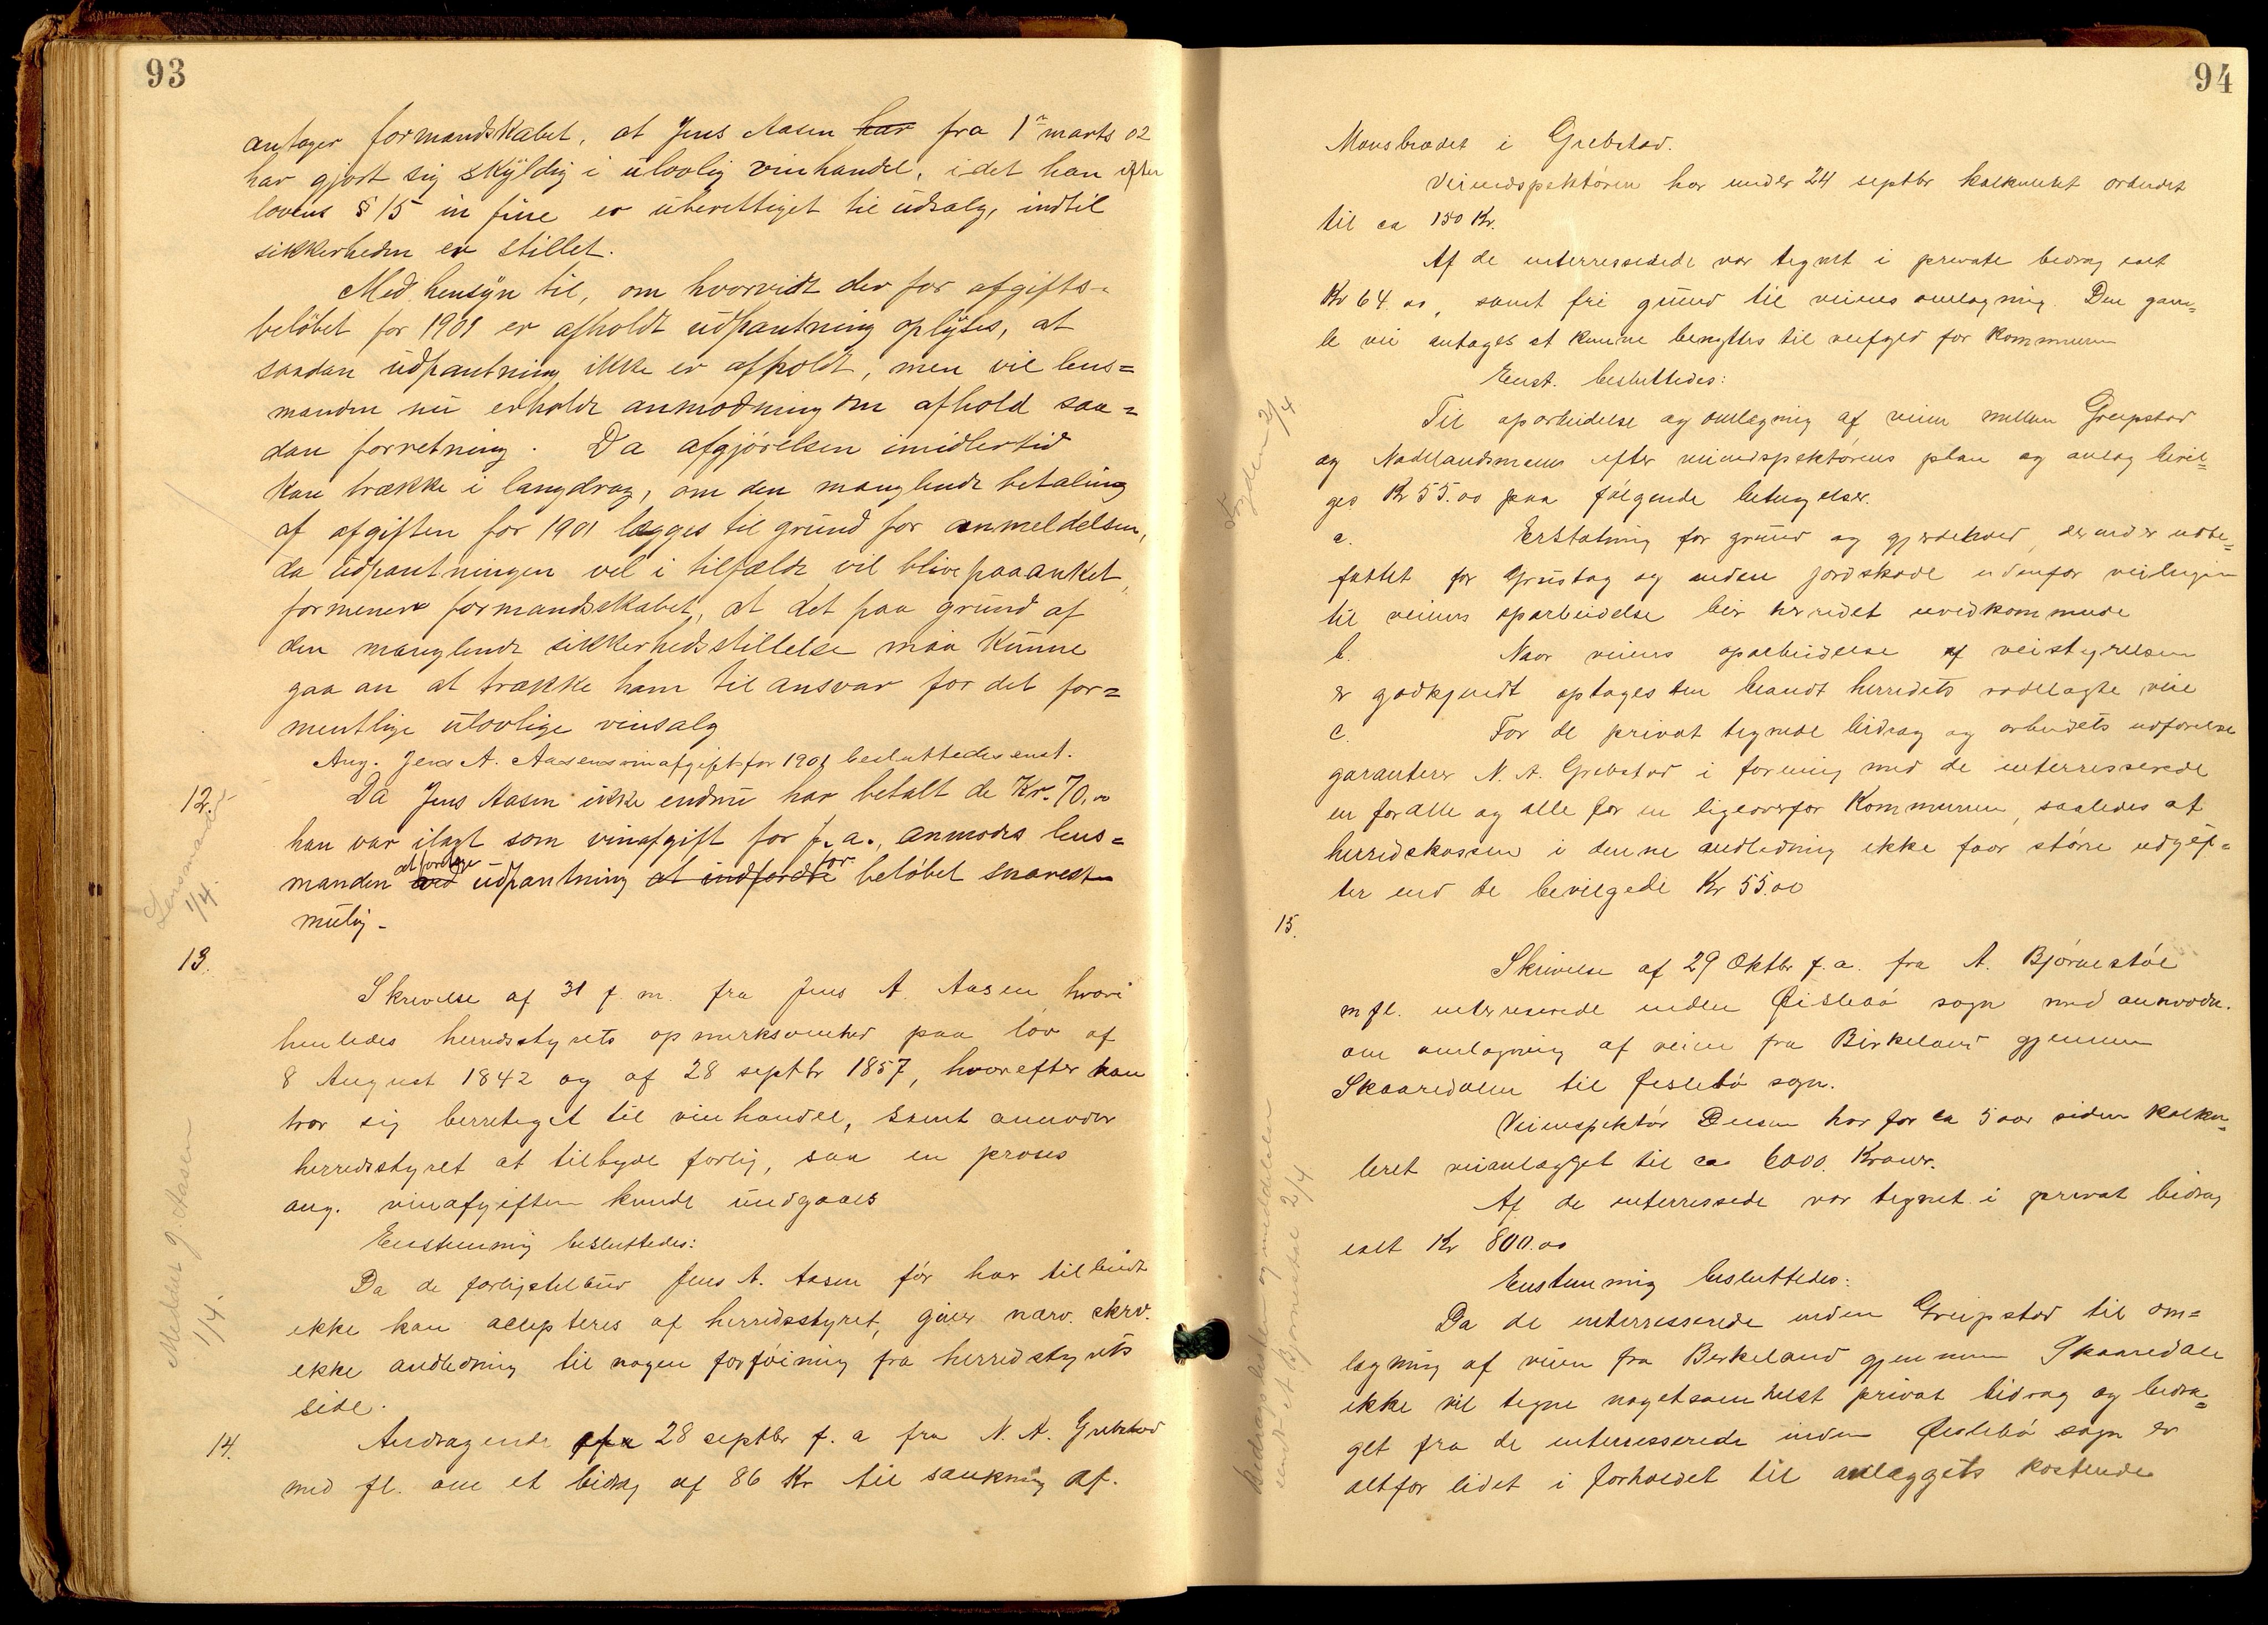 93
antager formandskabet, at Jens Aasen har fra 1ste marts 02
har gjort sig skyldig i ulovlig vinhandel, i det han efter
lovens § 15 in fine er uberettiget til udsalg, indtil
sikkerheden er stillet.
Med hensyn til, om hvorvidt der for afgifts-
beløbet for 1901 er afholdt udpantning oplyses, at
saadan udpantning ikke er afholdt, men vil lens=
manden nu erholde anmodning om afhold saa=
dan forretning. Da afgjørelsen imidlertid
kan trække i langdrag, om den manglende betaling
af afgiften for 1901 lægges til grund for anmeldelsen,
da udpantningen vel i tilfælde vil blive paaanket,
formener formandsskabet, at det paa grund af
den manglende sikkerhedsstillelse maa kunne
gaa an at trække ham til ansvar for det for=
mentlige ulovlige vinsalg
Ang. Jens A. Aasens vinafgift for 1901 besluttedes enst.
12. Da Jens Aasen ikke endnu har betalt de Kr. 70,00
han var ilagt som vinafgift for f. a., anmodes lens=
manden ved at foretage udpantning at indfordre for beløbet snarest
mulig.
Lensmand
1/4.
13.
Skrivelse af 31 f. m. fra Jens A. Aasen hvori
henledes herredsstyrets opmerksomhed paa lov af
8 August 1842 og af 28 septbr 1857, hvorefter han
tror sig berretiget til vinhandel, samt anmoder
herredsstyret at tilbyde forlig, saa en proses
ang. vinafgiften kunde undgaaes
Enstemmig besluttedes:
Da de forligstilbud Jens A. Aasen før har tilbudt
ikke kan accepteres af herredsstyret, giver nærv. skriv.
ikke andledning til nogen forføining fra herredstyrets
side.
Meddelt J. Aasen
1/4.
14. Andragende af 28 septbr f. a fra N. A. Grebstad
med fl. om et bidrag af 86 Kr til sænkning af.
94
Monsbrødet i Grebstad.
Veiindspektøren har under 24 septbr kalkuleret arbeidet
til ca 150 Kr.
Af de interresserede var tegnet i private bidrag ialt
Kr 64.00, samt fri grund til veiens omlægning. Den gam=
le vei antages at kunne benyttes til veifyld for kommunen
Enst. besluttedes:
Til oparbeidelse og omlægning af veien mellem Greipstad
og Nodelandsmoens efter veiindspektørens plan og anlæg bevil=
ges Kr 55.00 paa følgende betingelser.
Fogden 2/4
a. Erstatning for grund og gjerdehold, derunder udbe=
fattet for grustag og anden jordskade udenfor veilinjen
til veiens oparbeidelse bliver herredet uvedkommende
b. Naar veiens oparbeidelse af veistyrelsen
er godkjendt optages den blandt herredets rodelagte veie
c. For de privat tegnede bidrag og arbeidets udførelse
garanterer N. A. Grebstad i forening med de interresserede
en for alle og alle for en ligeoverfor Kommunen, saaledes at
herredskassen i denne andledning ikke faar større udgif=
ter end de bevilgede Kr 55.00
15.
Skrivelse af 29 Oktbr f. a. fra A. Bjørnestøl
m fl. interreserede inden Øislebø sogn med anmodn.
om omlægning af veien fra Birkeland gjennem
Skaaredalen til Øislebø sogn.
Veiinspektør Densen har for ca 5 aar siden kalku=
leret veianlægget til ca 6000. Kroner.
Af de interressede var tegnet i privat bidrag
ialt Kr 800.00
Enstemmig besluttedes:
Da de interresserede inden Greipstad til om=
lægning af veien fra Birkeland gjennem Skaaredalen
ikke vil tegne nogetsomhelst privat bidrag og bidra=
get fra de interresserede inden Øislebø sogn er
altfor lidet i forholdet til anlæggets kostende
bidragslisten og meddelelsen
sendt A Bjørnestøl 2/4